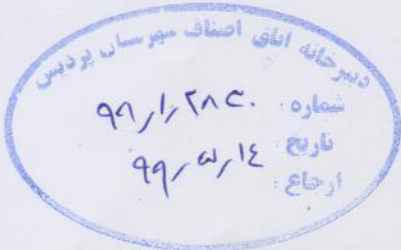 دبیرخانه اتاق اصناف شهرستان پردیس
شماره: ۹۹/ر/۲۸۳۰
تاریخ ۹۹/۵/۱۴
ارجاع: